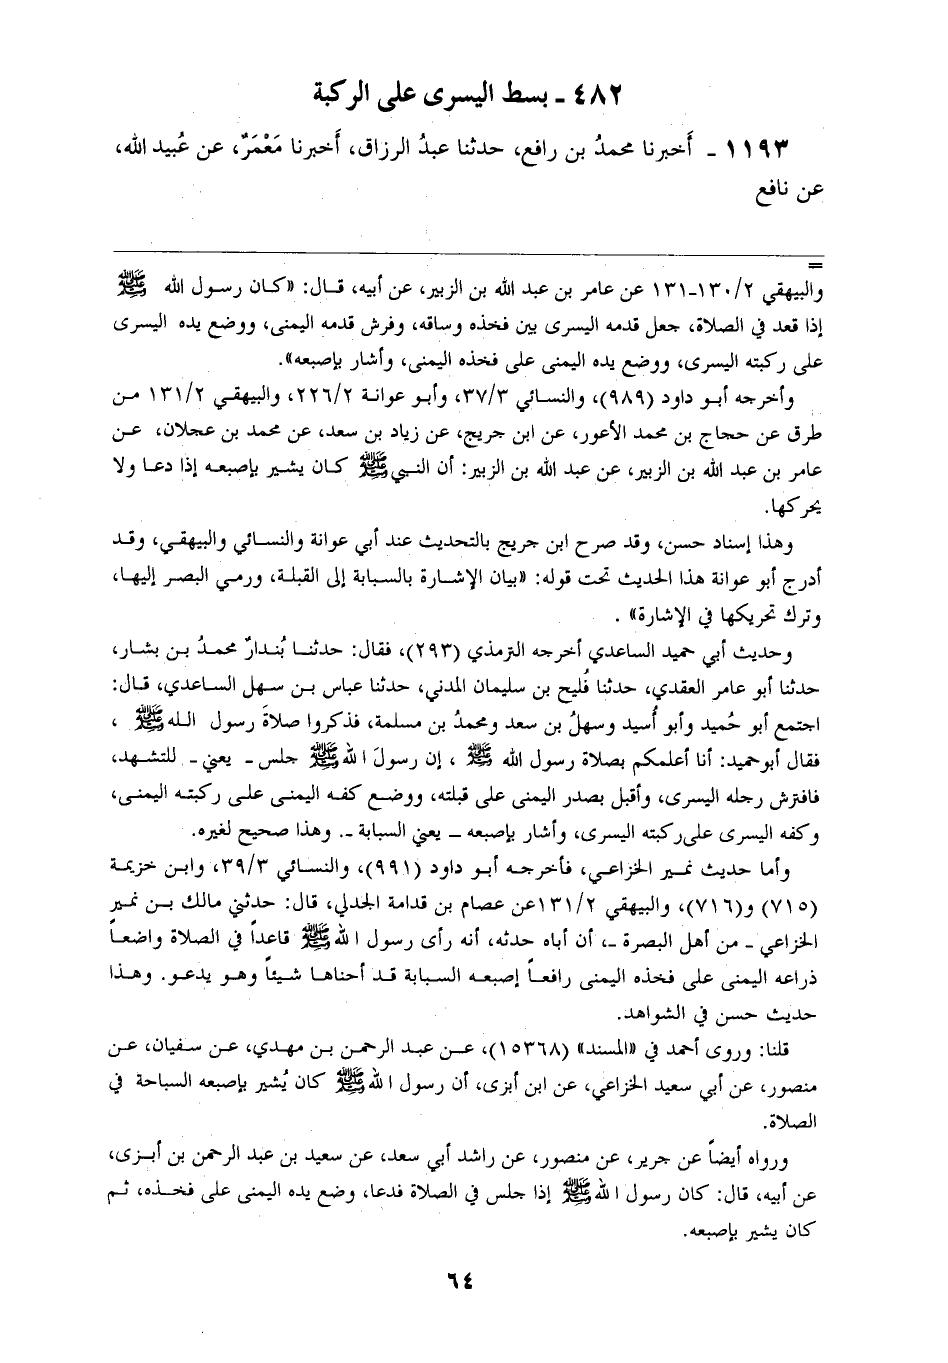 ٤٨٢ ـ بسط اليسرى على الركبة
١١٩٣ ـ أَخبرنا محمدُ بن رافع، حدثنا عبدُ الرزاق، أَخبرنا مَعْمَرٌ، عن عُبيد الله،
عن نافع
=
والبيهقي ١٣٠/٢ـ١٣١ عن عامر بن عبد الله بن الزبير، عن أبيه، قال: «كان رسول الله ﷺ
إذا قعد في الصلاة، جعل قدمه اليسرى بين فخذه وساقه، وفرش قدمه اليمنى، ووضع يده اليسرى
على ركبته اليسرى، ووضع يده اليمنى على فخذه اليمنى، وأشار بإصبعه».
وأخرجه أبو داود (٩٨٩)، والنسائي ٣٧/٣، وأبو عوانة ٢٢٦/٢، والبيهقي ١٣١/٢ من
طرق عن حجاج بن محمد الأعور، عن ابن جريج، عن زياد بن سعد، عن محمد بن عجلان، عن
عامر بن عبد الله بن الزبير، عن عبد الله بن الزبير: أن النبي ﷺ كان يشير بإصبعه إذا دعا ولا
يحركها.
وهذا إسناد حسن، وقد صرح ابن جريج بالتحديث عند أبي عوانة والنسائي والبيهقي، وقد
أدرج أبو عوانة هذا الحديث تحت قوله: «بيان الإشارة بالسبابة إلى القبلة، ورمي البصر إليها،
وترك تحريكها في الإشارة» .
وحديث أبي حميد الساعدي أخرجه الترمذي (٢٩٣)، فقال: حدثنا بُندارٌ محمدُ بن بشار،
حدثنا أبو عامر العقدي، حدثنا فُليح بن سليمان المدني، حدثنا عباس بن سهل الساعدي، قال:
اجتمع أبو حُميد وأبو أُسيد وسهلُ بن سعد ومحمدُ بن مسلمة، فذكروا صلاةَ رسول الله ﷺ ،
فقال أبوحميد: أنا أعلمكم بصلاة رسول الله ﷺ ، إن رسولَ الله ﷺ جلس ـ يعني ـ للتشهد،
فافترش رجله اليسرى، وأقبل بصدر اليمنى على قبلته، ووضع كفه اليمنى على ركبته اليمنى،
وكفه اليسرى على ركبته اليسرى، وأشار بإصبعه ـ يعني السبابة ـ. وهذا صحيح لغيره.
وأما حديث نمير الخزاعي، فأخرجه أبو داود (٩٩١)، والنسائي ٣٩/٣، وابن خزيمة
(٧١٥) و(٧١٦)، والبيهقي ١٣١/٢عن عصام بن قدامة الجدلي، قال: حدثني مالك بن نمير
الخزاعي ـ من أهل البصرة ـ، أن أباه حدثه، أنه رأى رسول الله ﷺ قاعداً في الصلاة واضعاً
ذراعه اليمنى على فخذه اليمنى رافعاً إصبعه السبابة قد أحناها شيئاً وهو يدعو. وهذا
حديث حسن في الشواهد.
قلنا: وروى أحمد في «المسند» (١٥٣٦٨)، عن عبد الرحمن بن مهدي، عن سفيان، عن
منصور، عن أبي سعيد الخزاعي، عن ابن أبزى، أن رسول الله ﷺ كان يُشير بإصبعه السباحة في
الصلاة.
ورواه أيضاً عن جرير، عن منصور، عن راشد أبي سعد، عن سعيد بن عبد الرحمن بن أبزى،
عن أبيه، قال: كان رسول الله ﷺ إذا جلس في الصلاة فدعا، وضع يده اليمنى على فخذه، ثم
كان يشير بإصبعه.
٦٤